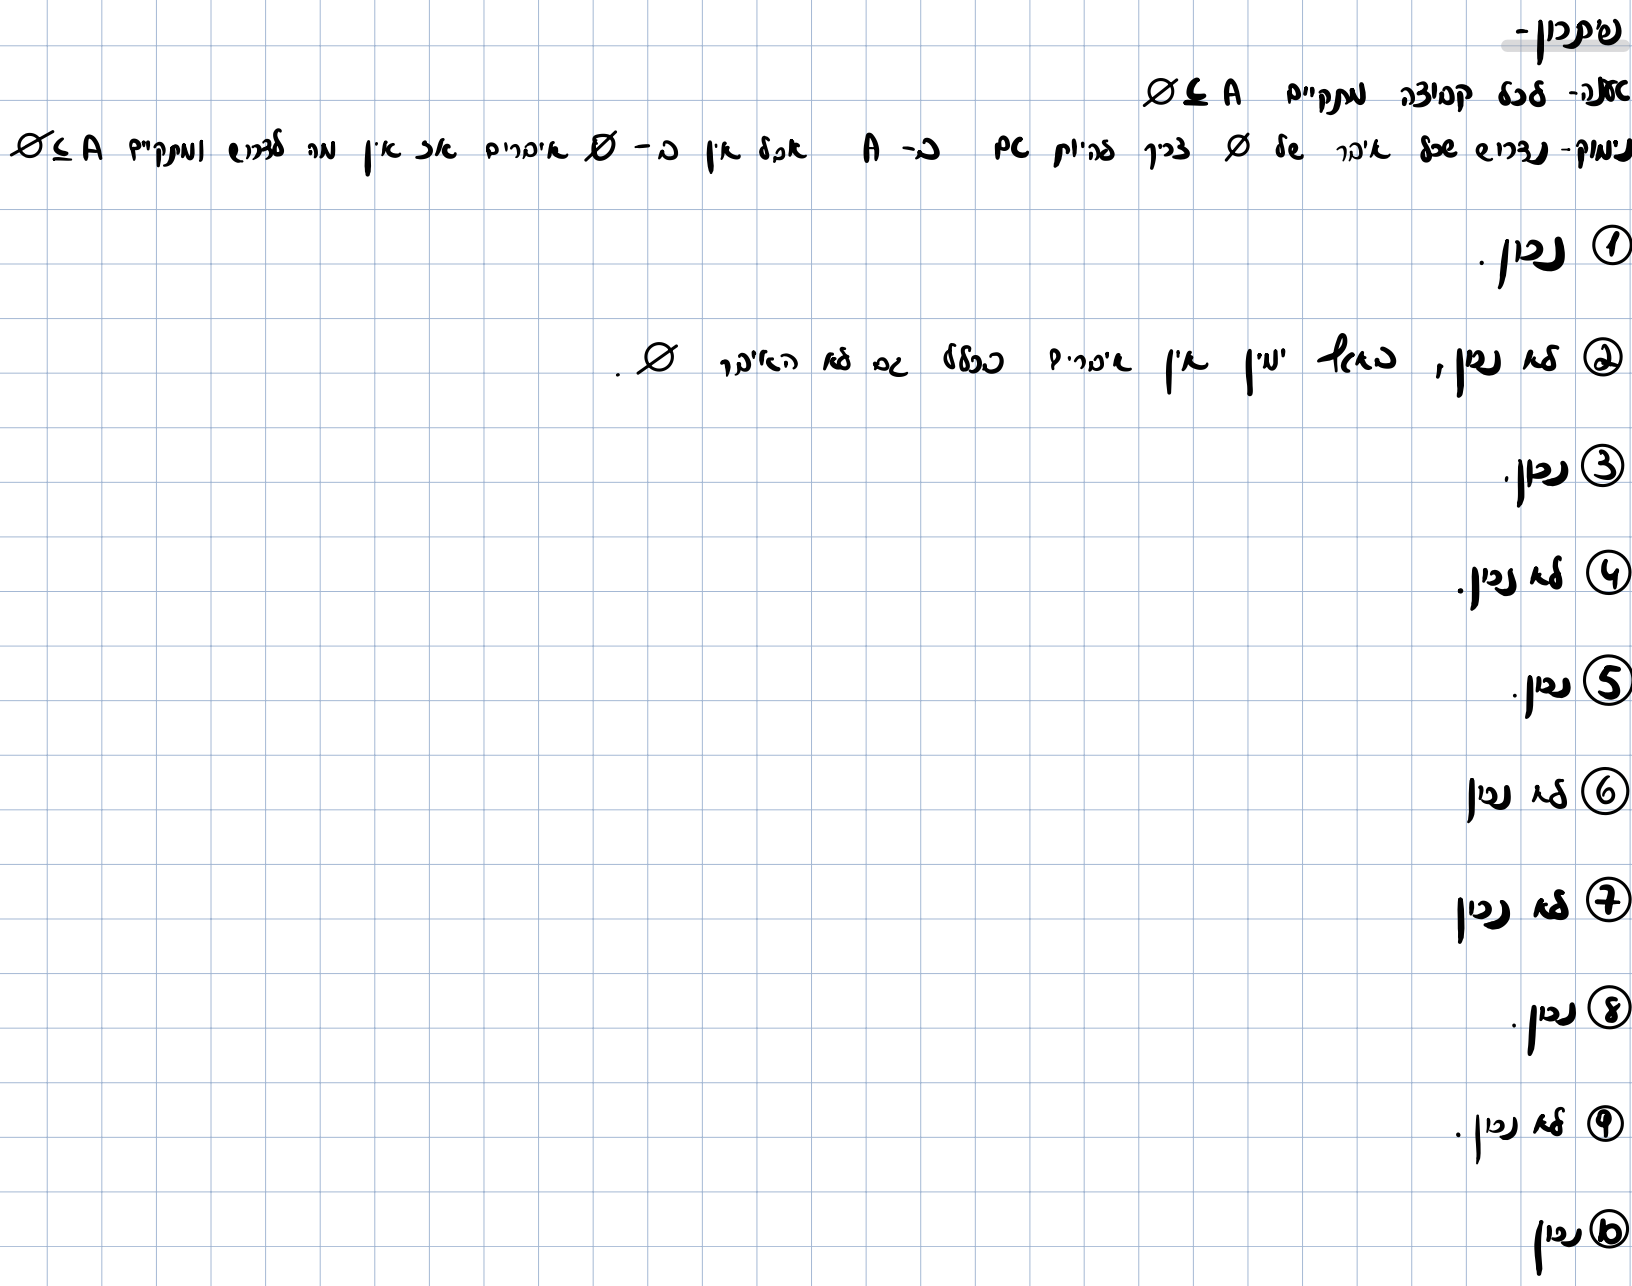 פיתרון-
טענה- לכל קבוצה מתקיים ∅⊆A
נימוק- נדרוש שכל איבר של ∅ צריך להיות גם ב- A אבל אין ב- ∅ איברים אז אין מה לדרוש ומתקיים ∅⊆A
① נכון.
② לא נכון, באגף ימין אין איברים בכלל גם לא האיבר ∅.
③ נכון.
④ לא נכון.
⑤ נכון.
⑥ לא נכון
⑦ לא נכון
⑧ נכון.
⑨ לא נכון.
⑩ נכון